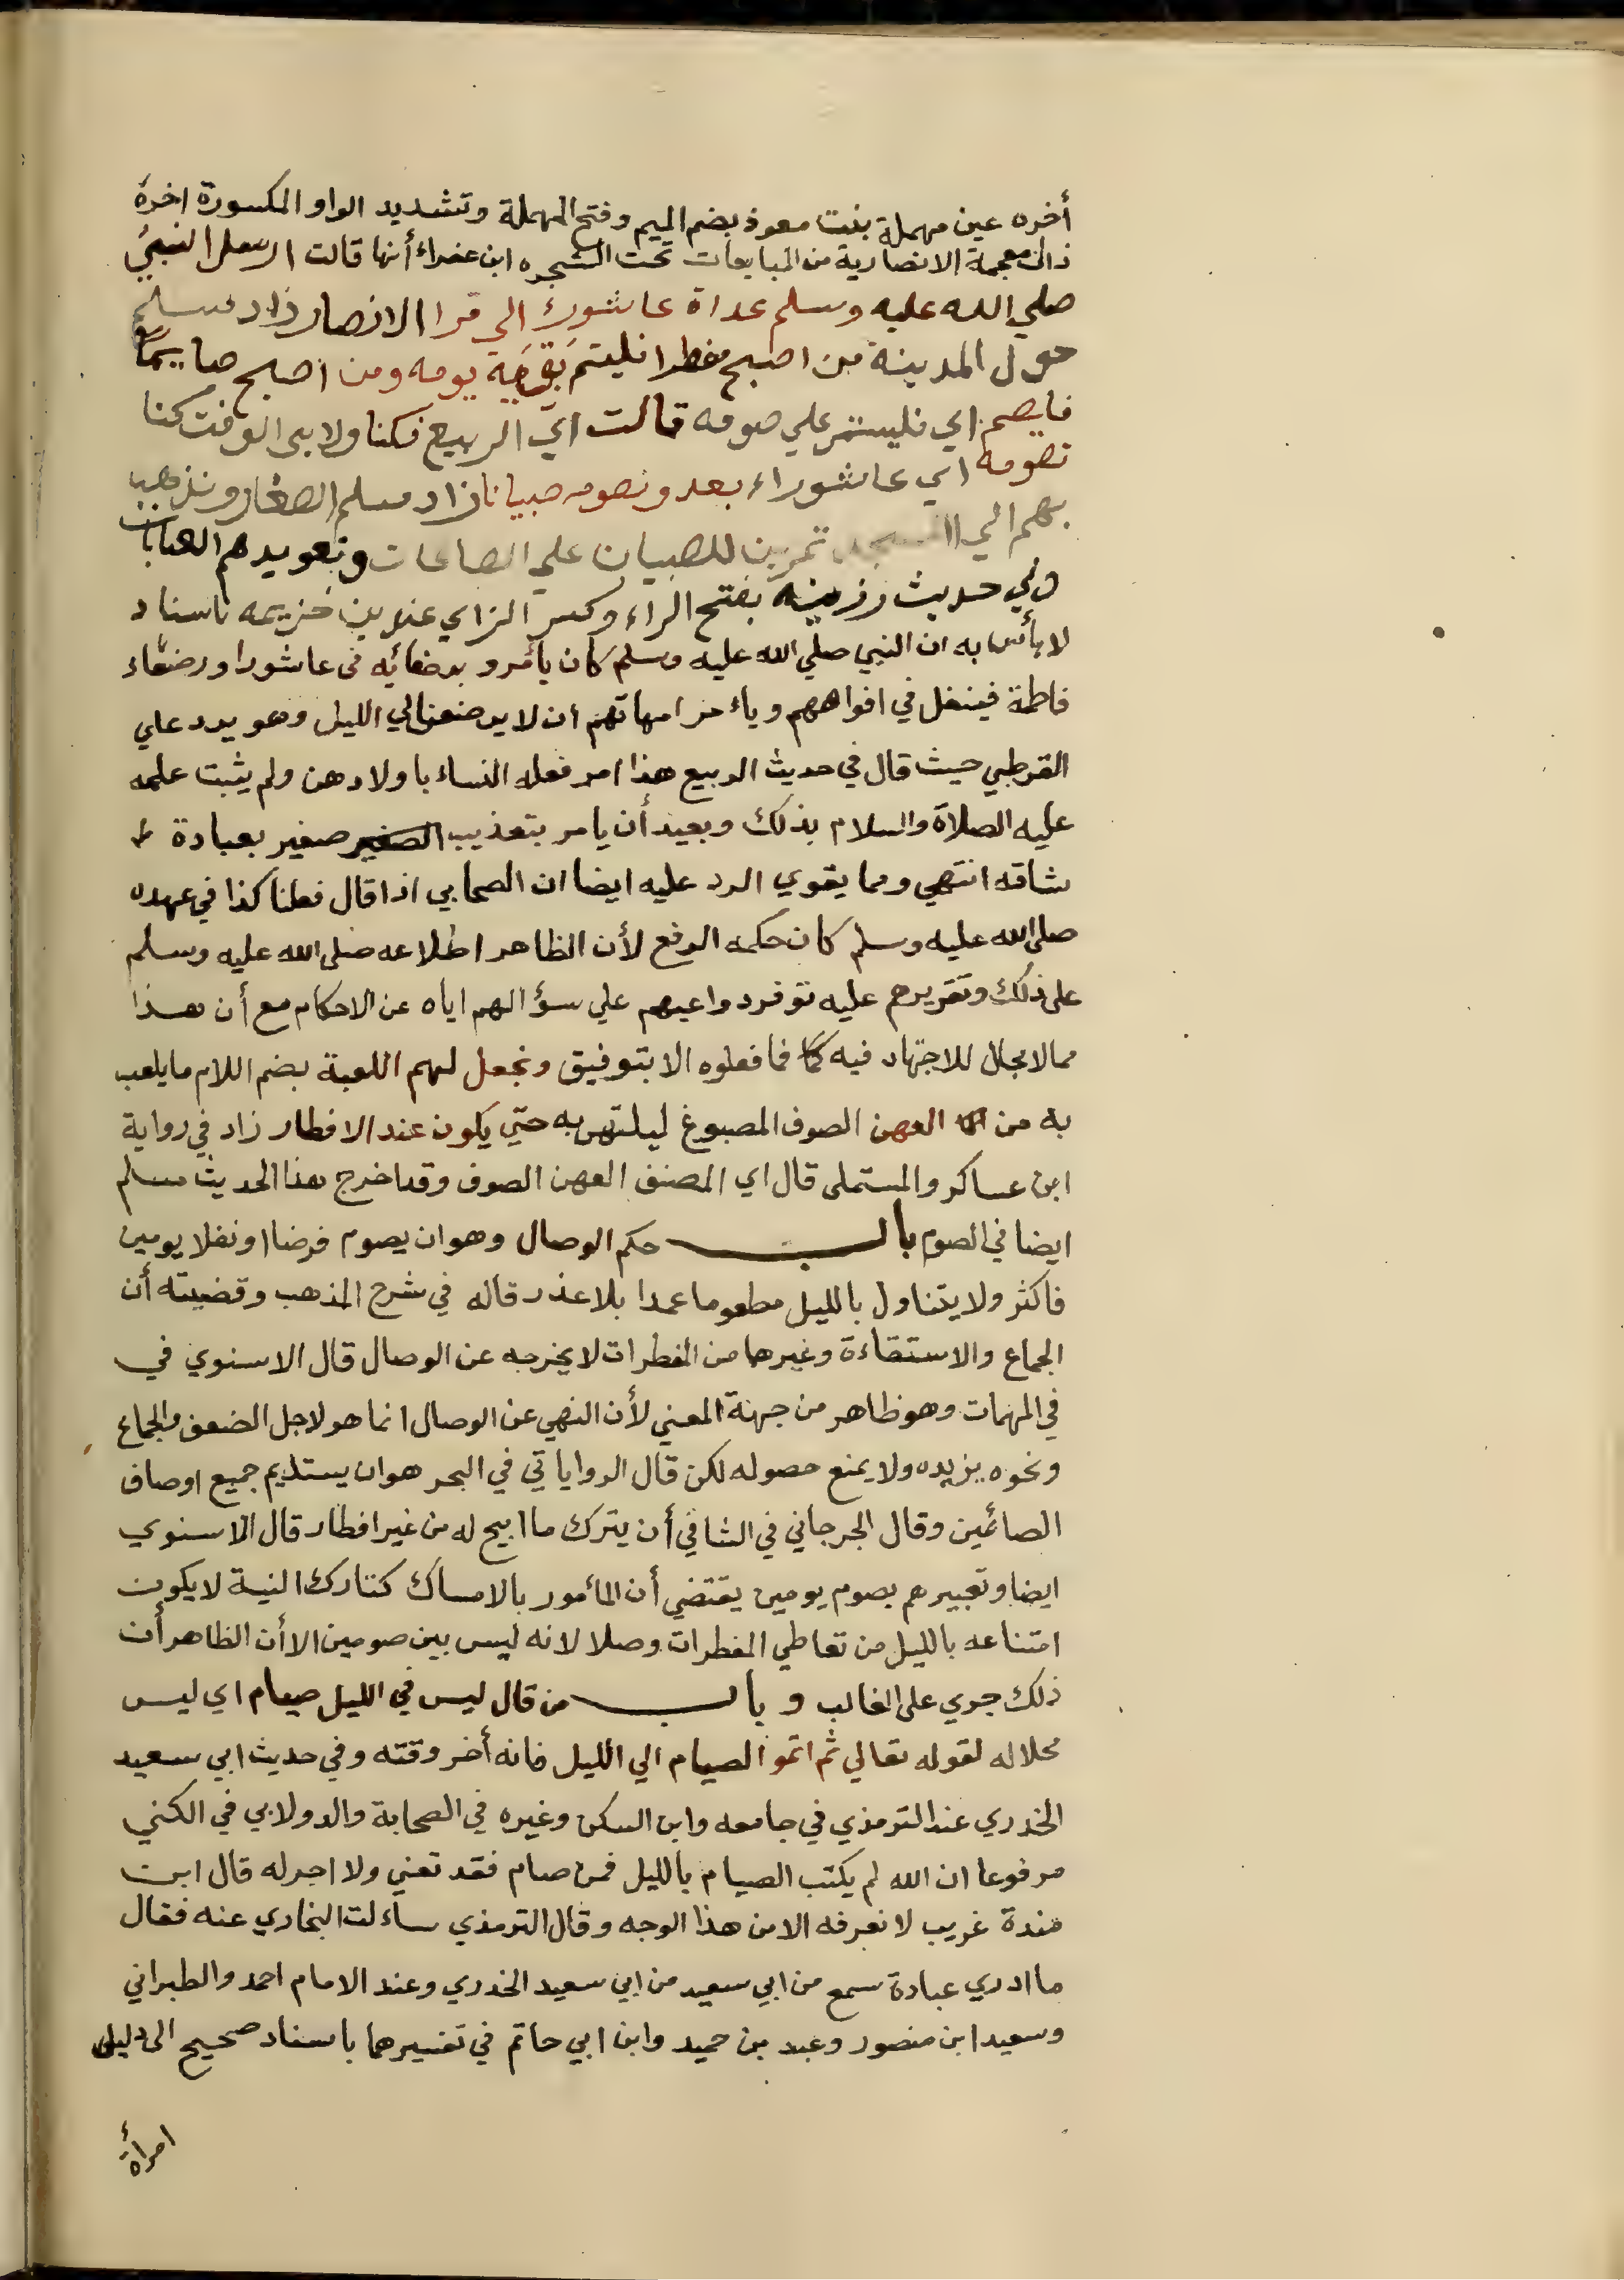 أخره عين مهملة بنت معوذ بضم الميم وفتح المهملة وتشديد الواو المكسورة اخره
ذال معجمة الانصارية من المبايعات تحت الشجره ابن عفراء أنها قالت ارسل النبي
صلي الله عليه وسلم غداة عاشورا الي قرا الانصار زاد مسلم
حول المدينة من اصبح مفطرا فليتم بَقِيَّة يومه ومن اصبح صايمًا
فليصم اي فليستمر علي صومه قالت اي الربيع فكنا ولابي الوقت كنا
نصومه اي عاشوراء بعد ونصومه صبياننا زاد مسلم الصغار ونذهب
بهم الي المسجد تمرين للصبيان علي الطاعات وتعويدهم العبادات
وفي حديث رزينه بفتح الراء وكسر الزاي عند بن خزيمه باسناد
لا بأس به ان النبي صلي الله عليه وسلم كان يأمر و برضعائه في عاشورا ورضعاء
فاطمة فيتفل في افواههم وياءمر امهاتهم ان لا يرضعن الي الليل وهو يرد علي
القرطبي حيث قال في حديث الربيع هذا امر فعله النساء باولادهن ولم يثبت علمه
عليه الصلاة والسلام بذلك وبعيد أن يامر بتعذيب الصغير صغير بعبادة
شاقه انتهي ومما يقوي الرد عليه ايضا ان الصحابي اذا قال فعلنا كذا في عهده
صلي الله عليه وسلم كان حكمه الرفع لأن الظاهر اطلاعه صلي الله عليه وسلم
علي ذلك وتقريرهم عليه توفر دواعيهم علي سؤالهم اياه عن الاحكام مع أن هذا
مما لا مجال للاجتهاد فيه فما فعلوه الا بتوفيق ونجعل لهم اللعبة بضم اللام ما يلعب
به من العهن الصوف المصبوغ ليلتهي به حتي يكون عند الافطار زاد في رواية
ابن عساكر والمستملي قال اي المصنف العهن الصوف وقد اخرج هذا الحديث مسلم
ايضا في الصوم باب حكم الوصال وهو ان يصوم فرضا او نفلا يومين
فاكثر ولا يتناول بالليل مطعوما عمدا بلا عذر قاله في شرح المذهب وقضيته أن
الجماع والاستقاءة وغيرها من المفطرات لا يخرجه عن الوصال قال الاسنوي في
في المهمات وهو ظاهر من جهة المعني لأن النهي عن الوصال انما هو لاجل الضعف والجماع
ونحوه يزيده ولا يمنع حصوله لكن قال الروياتي في البحر هو ان يستديم جميع اوصاف
الصائمين وقال الجرجاني في الشافي أن يترك ما ابيح له من غير افطار قال الاسنوي
ايضا وتعبيرهم بصوم يومين يقتضي أن المأمور بالامساك كتارك النية لا يكون
امتناعه بالليل من تعاطي المفطرات وصلا لانه ليس بين صومين الا أن الظاهر أن
ذلك جري علي الغالب و باب من قال ليس في الليل صيام اي ليس
محلا له لقوله تعالي ثم اتموا الصيام الي الليل فانه أخر وقته وفي حديث ابي سعيد
الخدري عند الترمذي في جامعه وابن السكن وغيره في الصحابة والدولابي في الكني
مرفوعا ان الله لم يكتب الصيام بالليل فمن صام فقد تعني ولا اجر له قال ابن
مندة غريب لا نعرفه الا من هذا الوجه وقال الترمذي ساءلت البخاري عنه فقال
ما ادري عبادة سمع من ابي سعيد من ابي سعيد الخدري وعند الامام احمد والطبراني
وسعيد ابن منصور وعبد بن حميد وابن ابي حاتم في تفسيرهما باسناد صحيح الي ليلي
امرأة